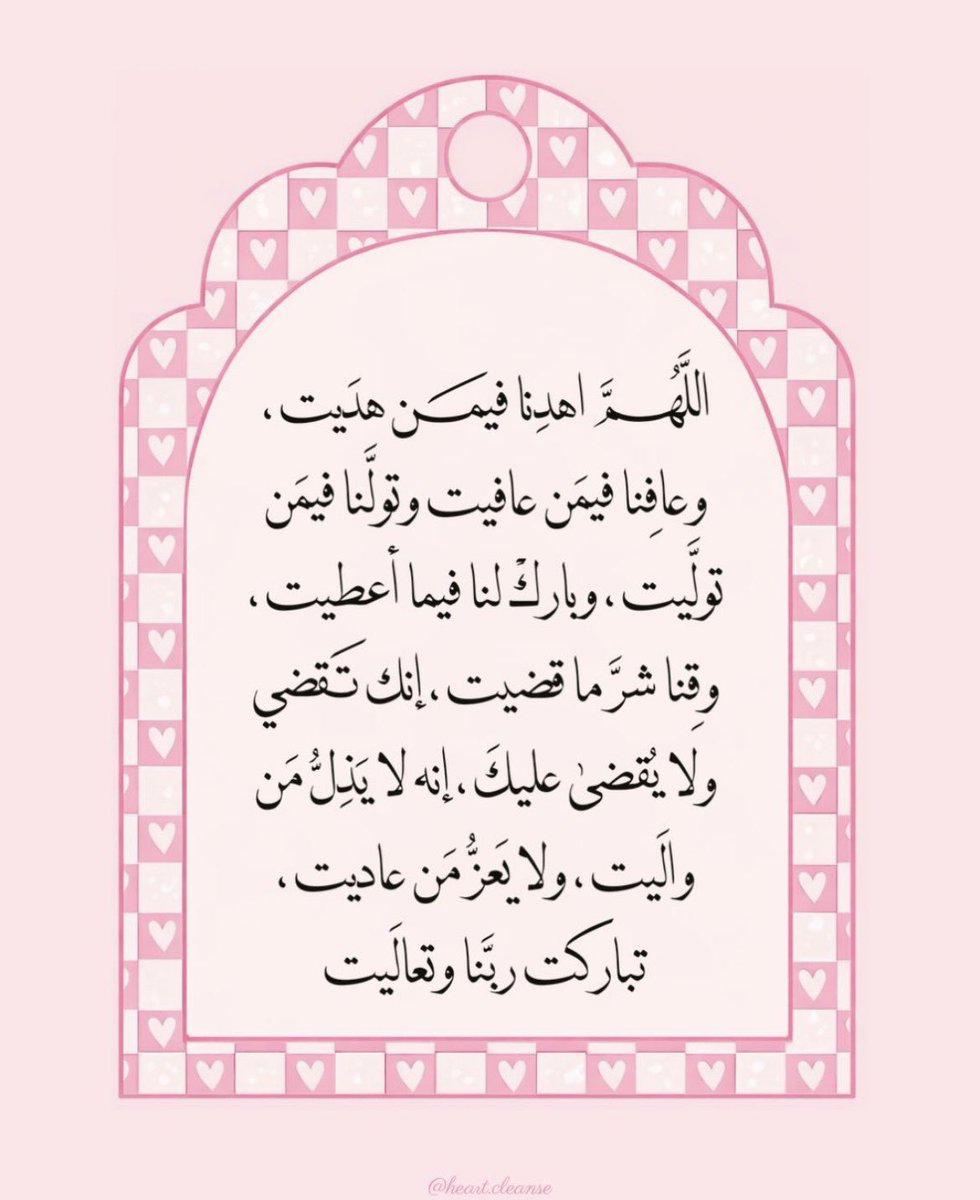 اللَّهُمَّ اهدِنا فيمَن هدَيت ،
وعافِنا فيمَن عافيت وتولَّنا فيمَن
تولَّيت ، وبارك لنا فيما أعطيت ،
وقِنا شرَّ ما قضيت ، إنك تَقضي
ولا يُقضىٰ عليكَ ، إنه لا يَذِلُّ مَن
والَيت ، ولا يَعَزُّ مَن عاديت ،
تباركت ربَّنا وتعالَيت
@heart.cleanse